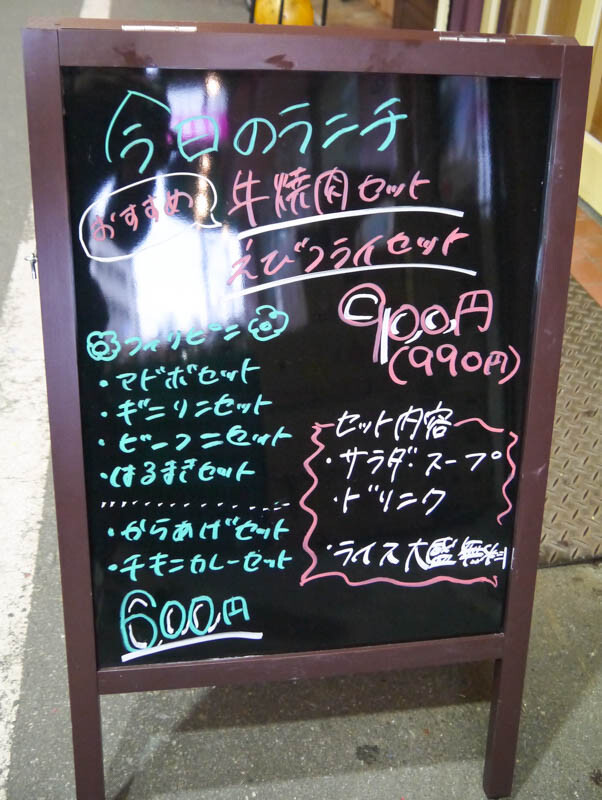 今日のランチ
おすすめ
牛焼肉セット
えびフライセット
900円
(990円)
フィリピン
・アドボセット
・ギニリンセット
・ビーフンセット
・はるまきセット
・からあげセット
・チキンカレーセット
600円
セット内容
・サラダ・スープ
・ドリンク
・ライス大盛無料